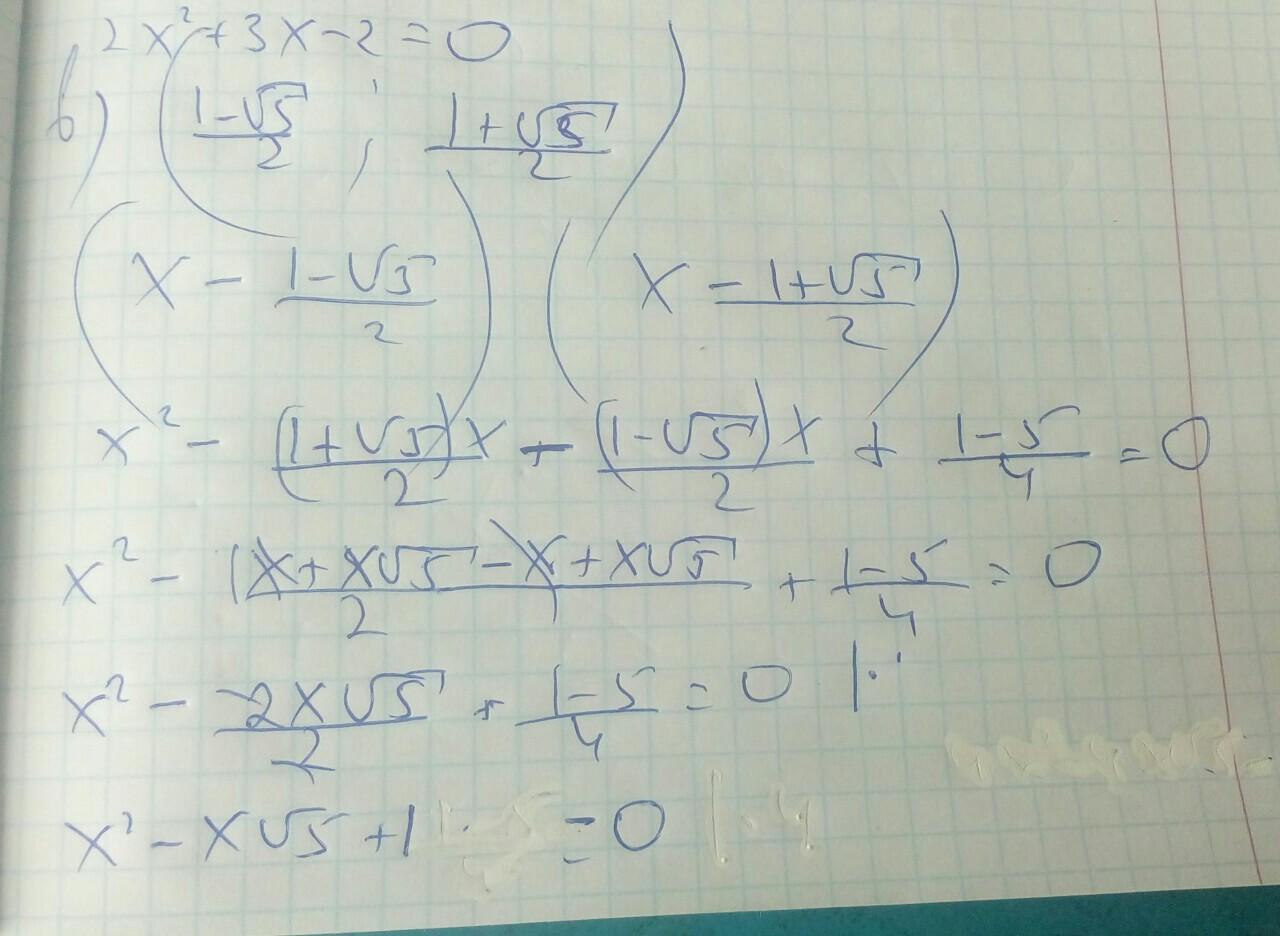 2x² + 3x - 2 = 0
б) ( (1-√5)/2 ; (1+√5)/2 )
( x - (1-√5)/2 ) ( x - (1+√5)/2 )
x² - (1+√5)x/2 - (1-√5)x/2 + (1-5)/4 = 0
x² - (x + x√5 - x + x√5)/2 + (1-5)/4 = 0
x² - 2x√5/2 + (1-5)/4 = 0 |·
x² - x√5 + 1 = 0 |·4